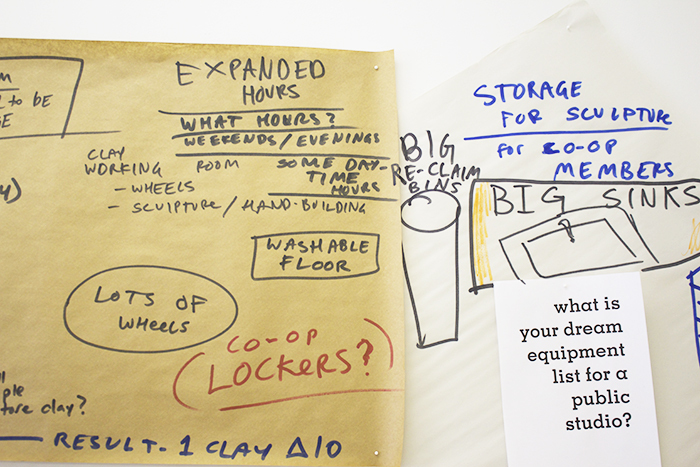 EXPANDED
HOURS
WHAT HOURS?
WEEKENDS/EVENINGS
SOME DAY-
TIME
HOURS
to BE
CLAY
WORKING ROOM
- WHEELS
- SCULPTURE / HAND-BUILDING
WASHABLE
FLOOR
LOTS OF
WHEELS
CO-OP
(LOCKERS?)
clay?
RESULT. 1 CLAY
BIG
RE-CLAIM
BINS
STORAGE
FOR SCULPTURE
for CO-OP
MEMBERS
BIG SINKS
what is
your dream
equipment
list for a
public
studio?